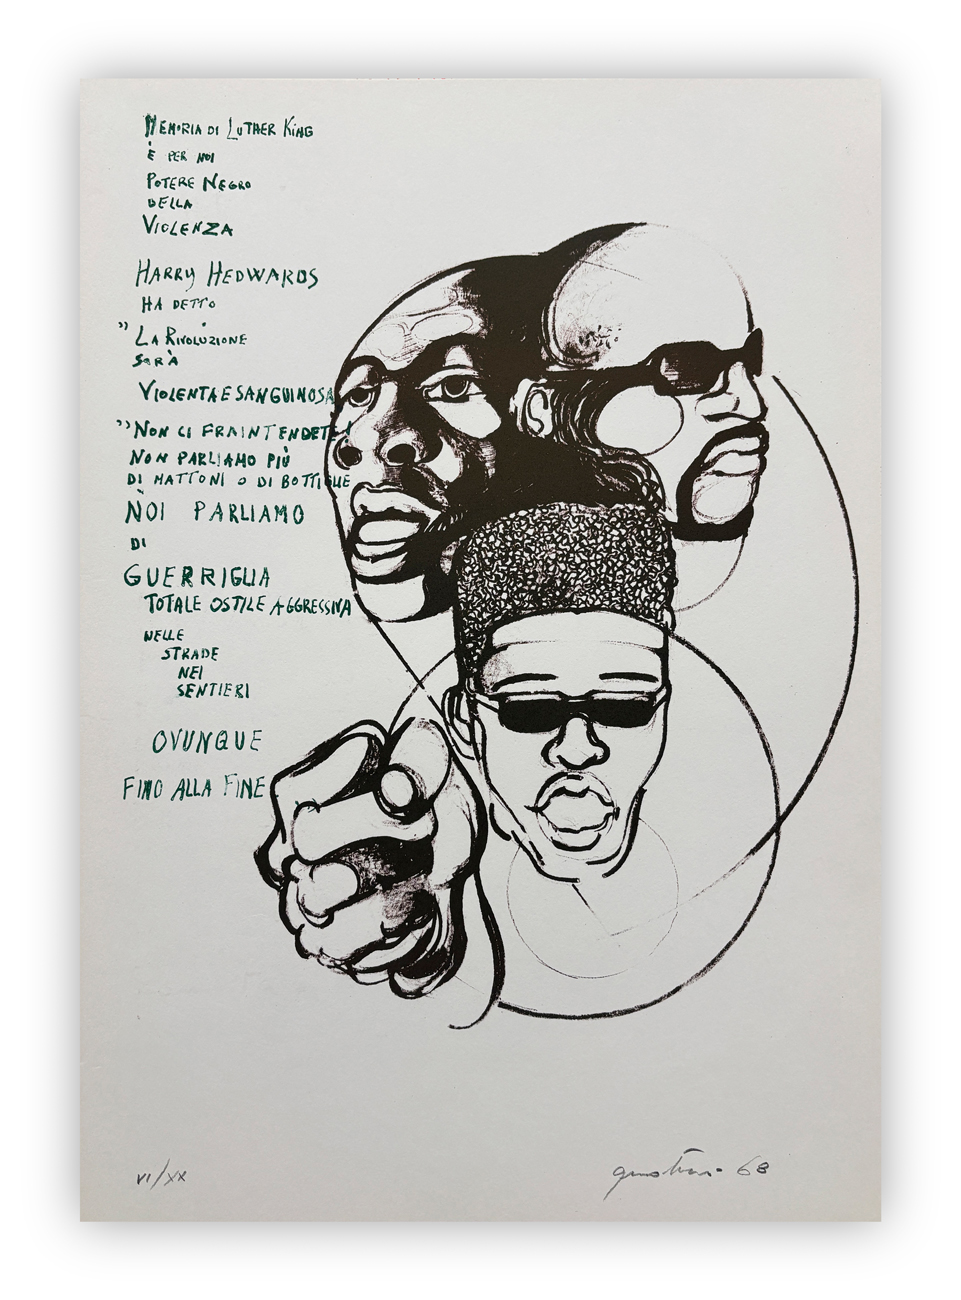 MEMORIA DI LUTHER KING
È PER NOI
POTERE NEGRO
DELLA
VIOLENZA
HARRY HEDWARDS
HA DETTO
"LA RIVOLUZIONE
SARÀ
VIOLENTA E SANGUINOSA
"NON CI FRAINTENDETE!
NON PARLIAMO PIÙ
DI MATTONI O DI BOTTIGLIE
NOI PARLIAMO
DI
GUERRIGLIA
TOTALE OSTILE AGGRESSIVA
NELLE
STRADE
NEI
SENTIERI
OVUNQUE
FINO ALLA FINE
VI/XX
68